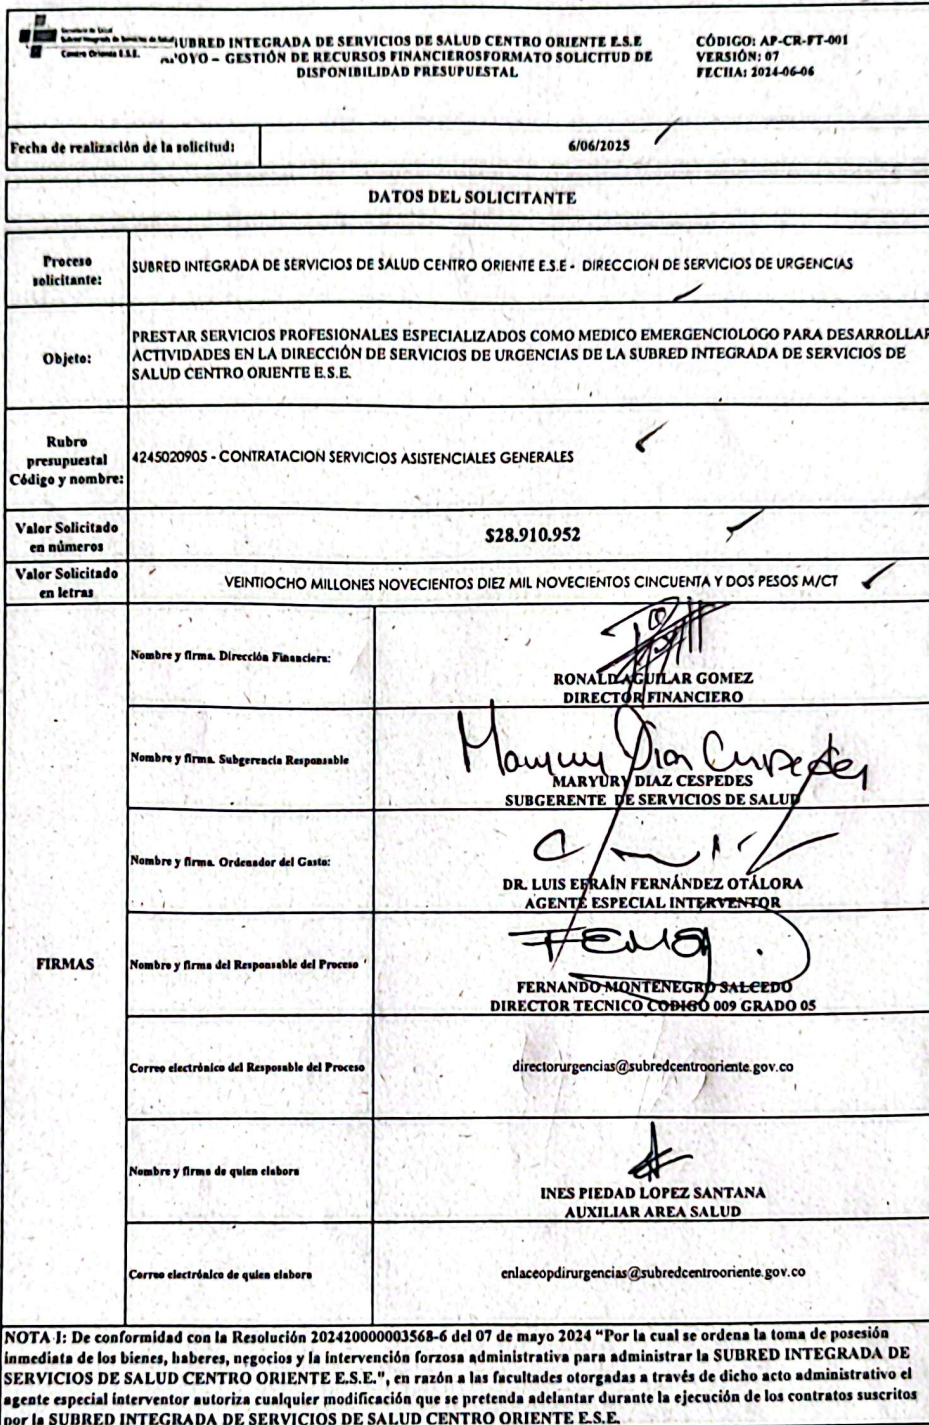 Secretaría de Salud
Subred Integrada de Servicios de Salud
Centro Oriente E.S.E.
SUBRED INTEGRADA DE SERVICIOS DE SALUD CENTRO ORIENTE E.S.E
APOYO – GESTIÓN DE RECURSOS FINANCIEROSFORMATO SOLICITUD DE
DISPONIBILIDAD PRESUPUESTAL
CÓDIGO: AP-CR-FT-001
VERSIÓN: 07
FECHA: 2024-06-06
Fecha de realización de la solicitud:
6/06/2025
DATOS DEL SOLICITANTE
Proceso
solicitante:
SUBRED INTEGRADA DE SERVICIOS DE SALUD CENTRO ORIENTE E.S.E - DIRECCION DE SERVICIOS DE URGENCIAS
Objeto:
PRESTAR SERVICIOS PROFESIONALES ESPECIALIZADOS COMO MEDICO EMERGENCIOLOGO PARA DESARROLLAR
ACTIVIDADES EN LA DIRECCIÓN DE SERVICIOS DE URGENCIAS DE LA SUBRED INTEGRADA DE SERVICIOS DE
SALUD CENTRO ORIENTE E.S.E.
Rubro
presupuestal
Código y nombre:
4245020905 - CONTRATACION SERVICIOS ASISTENCIALES GENERALES
Valor Solicitado
en números
$28.910.952
Valor Solicitado
en letras
VEINTIOCHO MILLONES NOVECIENTOS DIEZ MIL NOVECIENTOS CINCUENTA Y DOS PESOS M/CT
FIRMAS
Nombre y firma. Dirección Financiera:
RONALD AGUILAR GOMEZ
DIRECTOR FINANCIERO
Nombre y firma. Subgerencia Responsable
Maryury Diaz Cespedes
MARYURY DIAZ CESPEDES
SUBGERENTE DE SERVICIOS DE SALUD
Nombre y firma. Ordenador del Gasto:
DR. LUIS EFRAÍN FERNÁNDEZ OTÁLORA
AGENTE ESPECIAL INTERVENTOR
Nombre y firma del Responsable del Proceso
FERNANDO MONTENEGRO SALCEDO
DIRECTOR TECNICO CODIGO 009 GRADO 05
Correo electrónico del Resposable del Proceso
directorurgencias@subredcentrooriente.gov.co
Nombre y firma de quien elabora
INES PIEDAD LOPEZ SANTANA
AUXILIAR AREA SALUD
Correo electrónico de quien elabora
enlaceopdirurgencias@subredcentrooriente.gov.co
NOTA 1: De conformidad con la Resolución 202420000003568-6 del 07 de mayo 2024 “Por la cual se ordena la toma de posesión
inmediata de los bienes, haberes, negocios y la intervención forzosa administrativa para administrar la SUBRED INTEGRADA DE
SERVICIOS DE SALUD CENTRO ORIENTE E.S.E.", en razón a las facultades otorgadas a través de dicho acto administrativo el
agente especial interventor autoriza cualquier modificación que se pretenda adelantar durante la ejecución de los contratos suscritos
por la SUBRED INTEGRADA DE SERVICIOS DE SALUD CENTRO ORIENTE E.S.E.